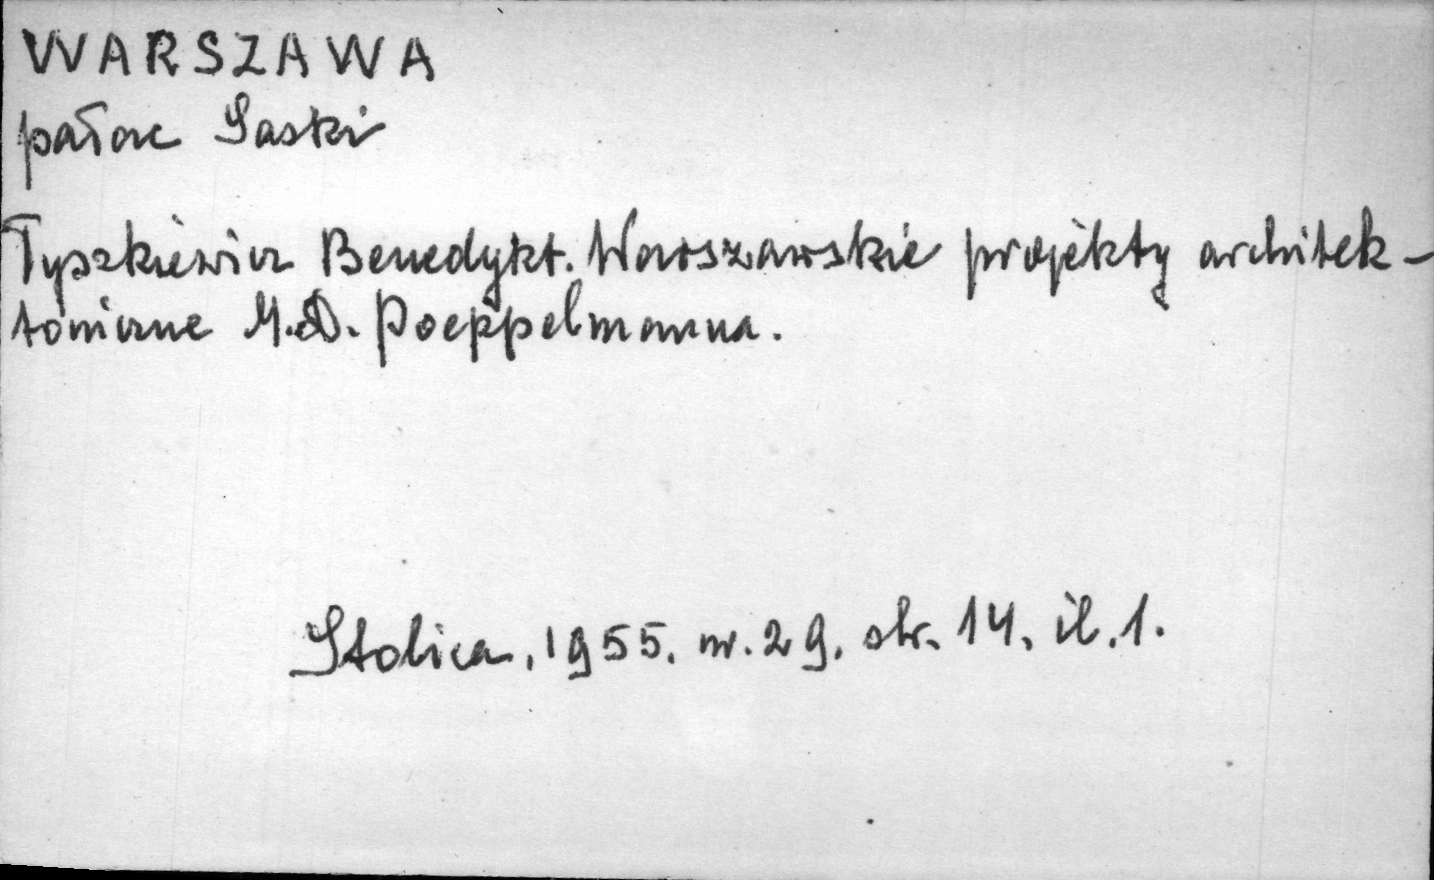 WARSZAWA
pałac Saski
Tyszkiewicz Benedykt. Warszawskie projekty architek-
toniczne M.D. Poeppelmanna.
Stolica, 1955. nr. 29. str. 14. il. 1.